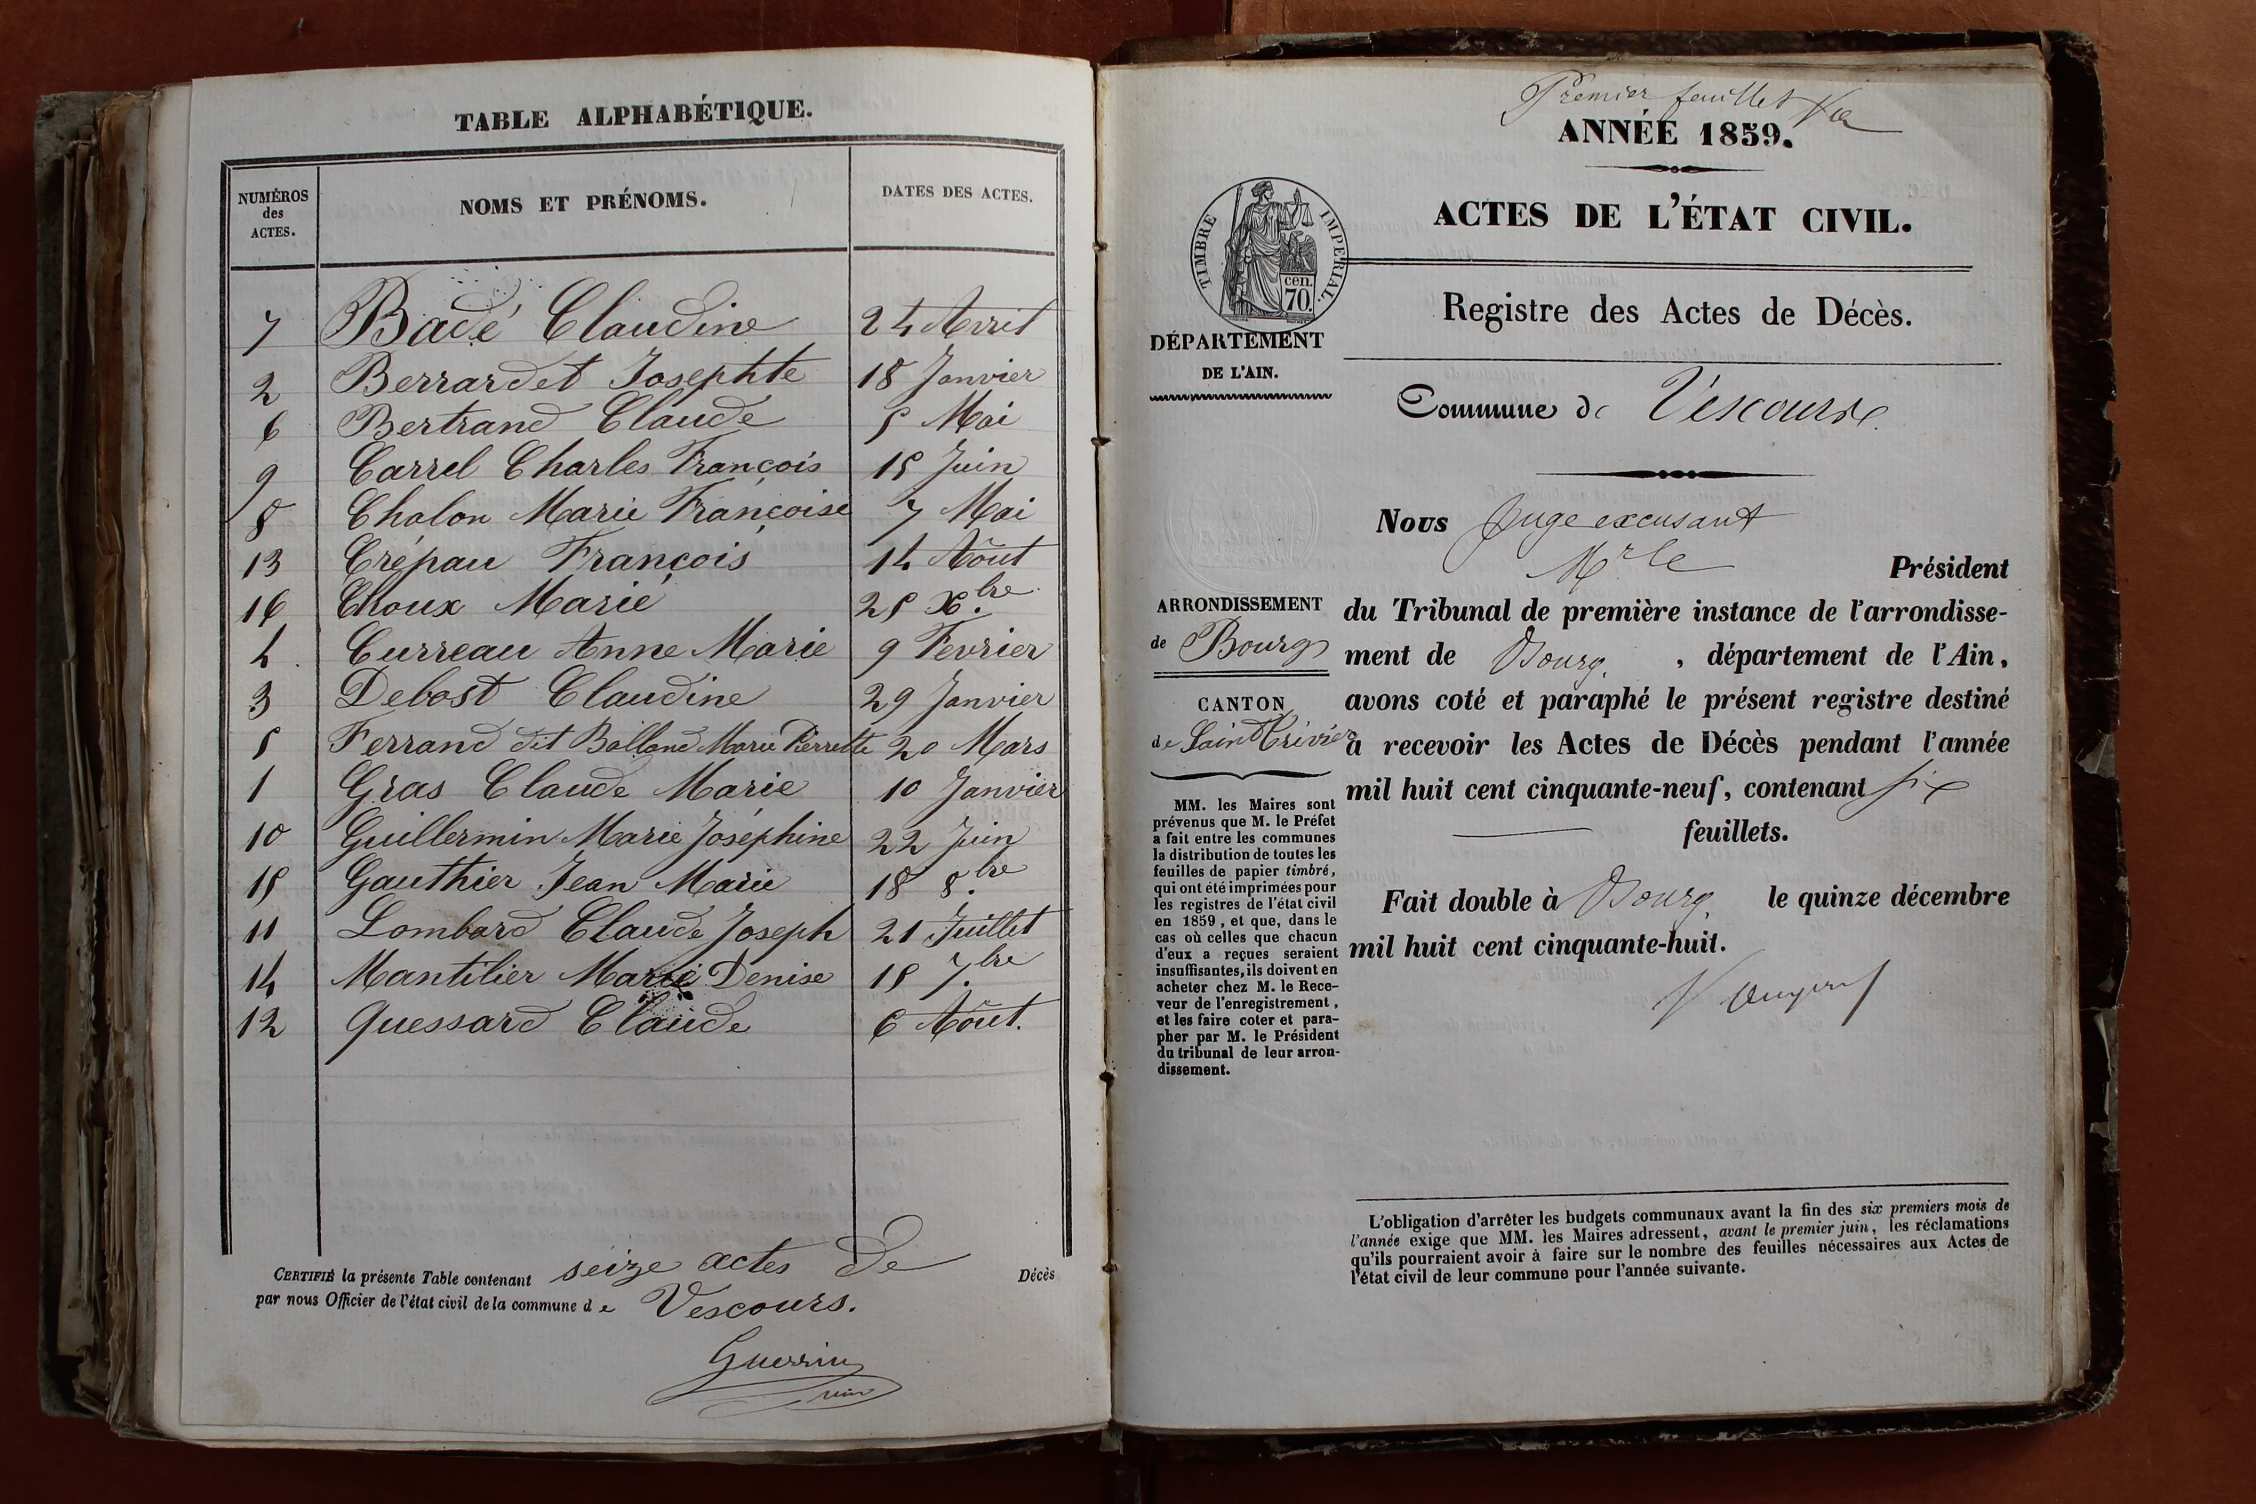 TABLE ALPHABÉTIQUE.
NUMÉROS des ACTES. NOMS ET PRÉNOMS. DATES DES ACTES.
7 Badé Claudine 24 Avril
2 Berrardet Josephte 18 Janvier
6 Bertrand Claude 5 Mai
9 Carrel Charles François 15 Juin
8 Chalon Marie Françoise 7 Mai
13 Crépau François 14 Aôut
16 Choux Marie 25 Xbre
4 Curreau Anne Marie 9 Fevrier
3 Debost Claudine 29 Janvier
5 Ferrand dit Balland Marie Pierrette 20 Mars
1 Gras Claude Marie 10 Janvier
10 Guillermin Marie Joséphine 22 Juin
15 Gauthier Jean Marie 18 8.bre
11 Lombard Claude Joseph 21 Juillet
14 Mantilier Marie Denise 15 7.bre
12 Quessard Claude 6 Aôut.
CERTIFIÉ la présente Table contenant seize actes de Décès
par nous Officier de l'état civil de la commune de Vescours.
Guerrin
Premier feuillet
ANNÉE 1859.
ACTES DE L'ÉTAT CIVIL.
TIMBRE IMPERIAL.
cen.
70.
Registre des Actes de Décès.
DÉPARTEMENT
DE L'AIN.
Commune de Vescours
Nous Juge excusant
Mr le Président
ARRONDISSEMENT
de Bourg
CANTON
de Saint Trivier
du Tribunal de première instance de l'arrondisse-
ment de Bourg, département de l'Ain,
avons coté et paraphé le présent registre destiné
a recevoir les Actes de Décès pendant l'année
mil huit cent cinquante-neuf, contenant six
feuillets.
Fait double à Bourg le quinze décembre
mil huit cent cinquante-huit.
MM. les Maires sont
prévenus que M. le Préfet
a fait entre les communes
la distribution de toutes les
feuilles de papier timbré,
qui ont été imprimées pour
les registres de l'état civil
en 1859, et que, dans le
cas où celles que chacun
d'eux a reçues seraient
insuffisantes, ils doivent en
acheter chez M. le Rece-
veur de l'enregistrement,
et les faire coter et para-
pher par M. le Président
du tribunal de leur arron-
dissement.
L'obligation d'arrêter les budgets communaux avant la fin des six premiers mois de
l'année exige que MM. les Maires adressent, avant le premier juin, les réclamations
qu'ils pourraient avoir à faire sur le nombre des feuilles nécessaires aux Actes de
l'état civil de leur commune pour l'année suivante.